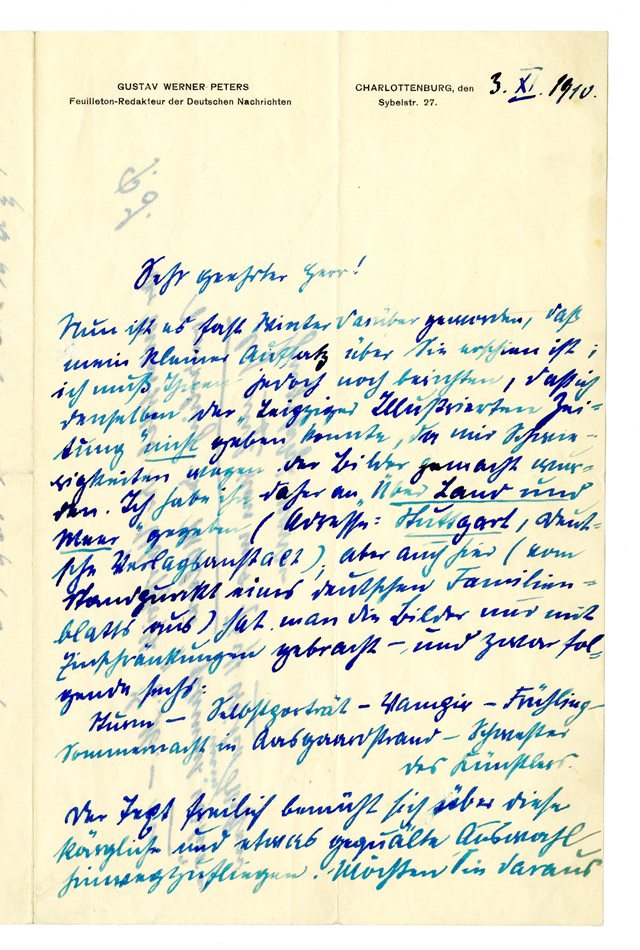 GUSTAV WERNER PETERS
Feuilleton-Redakteur der Deutschen Nachrichten
CHARLOTTENBURG, den 3. XI. 1910.
Sybelstr. 27.
Sehr geehrter Herr!
Nun ist es fast Winter darüber geworden, daß
mein kleiner Aufsatz über Sie erschien ist;
ich muß Ihnen jedoch noch berichten, daß ich
denselben der "Leipziger Illustrierten Zei-
tung" nicht geben konnte, da mir Schwie-
rigkeiten wegen der Bilder gemacht wur-
den. Ich habe ihn daher an "Über Land und
Meer" gegeben (Adresse: Stuttgart, Deut-
sche Verlagsanstalt); aber auch hier (vom
Standpunkt eines deutschen Familien-
blatts aus) hat man die Bilder nur mit
Einschränkungen gebracht – und zwar fol-
gende sechs:
Sturm – Selbstporträt – Vampir – Frühling –
Sommernacht in Aasgaardstrand – Schwester
des Künstlers.
Der Text freilich bemüht sich über diese
kärgliche und etwas gequälte Auswahl
hinwegzufliegen. Möchten Sie daraus